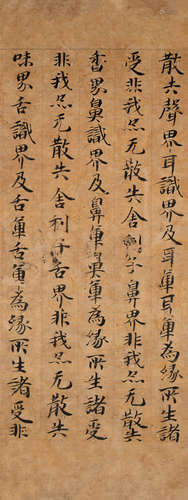 散失聲界耳識界及耳觸耳觸為緣所生諸
受非我亦无散失舍利子鼻界非我亦无散失
香界鼻識界及鼻觸鼻觸為緣所生諸受
非我亦无散失舍利子舌界非我亦无散失
味界舌識界及舌觸舌觸為緣所生諸受非